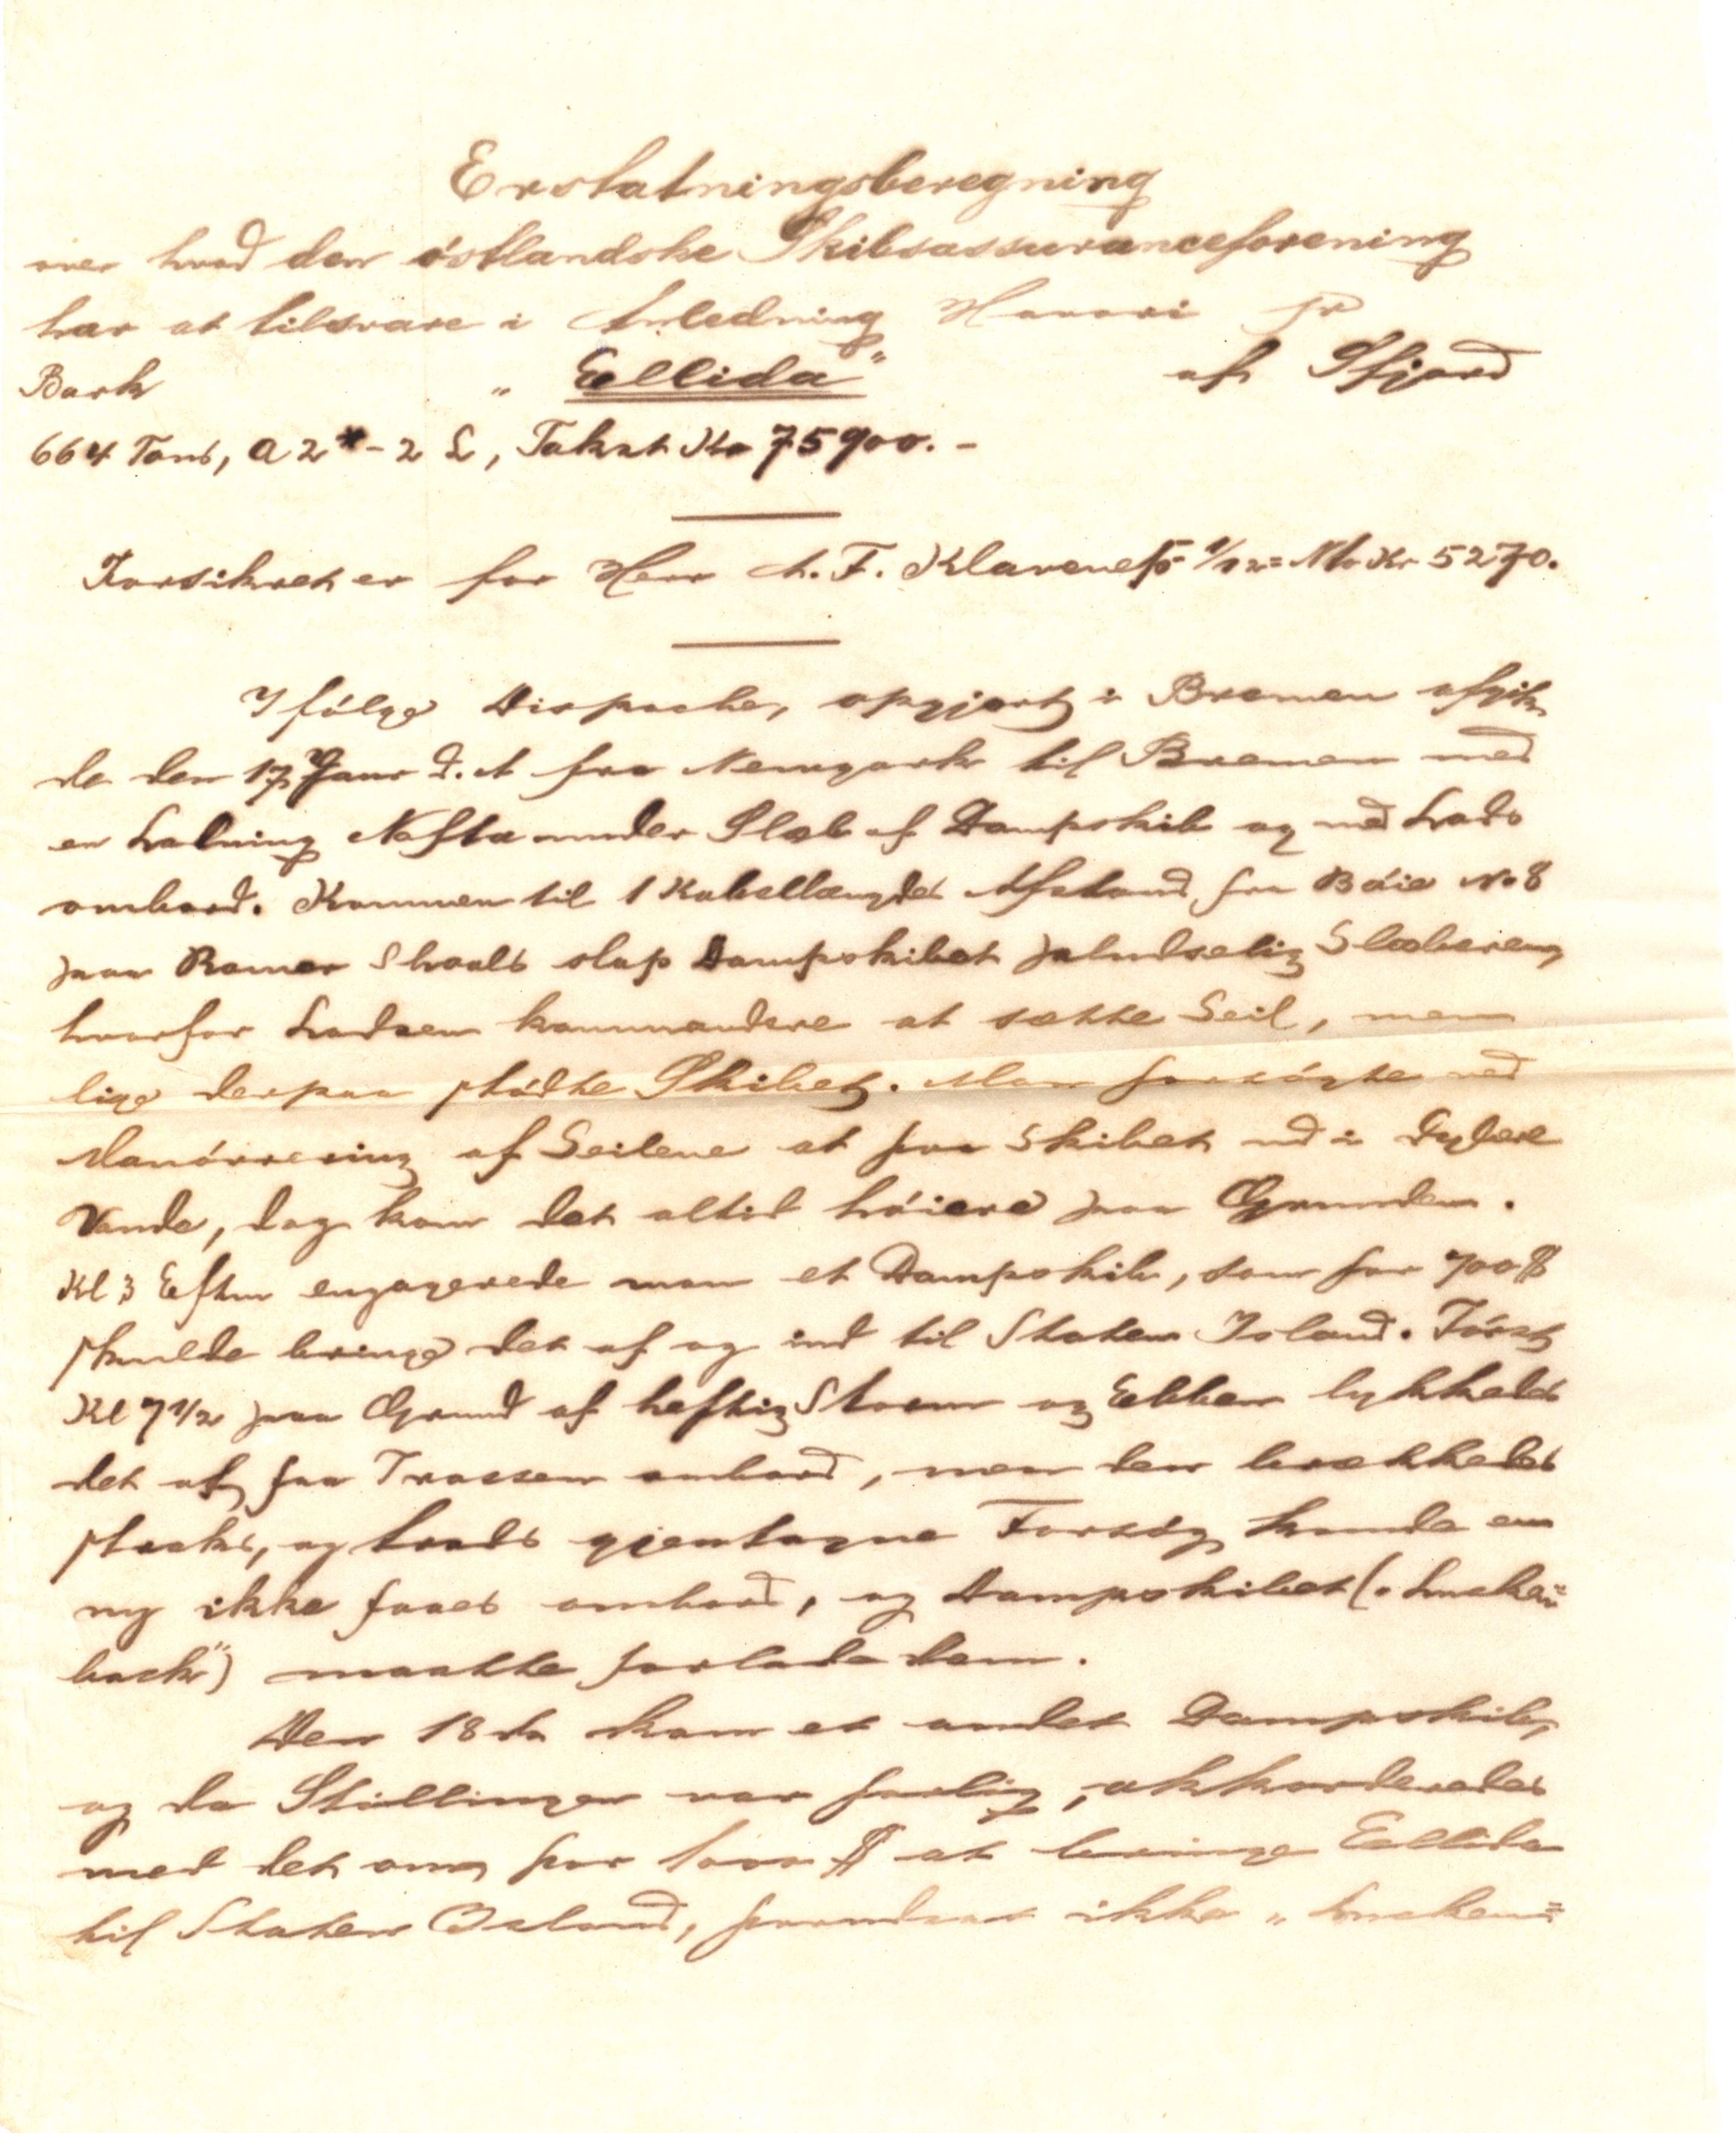 Erstatningsberegning
over hvad den östlandske Skibsassuranceforening
har at tilsvare i Anledning Havari pr
Bark "Ellida" af Sfjord
664 Tons, A 2*-2 L, Takst Kr 75900.-
Forsikret er for Herr A. F. Klaveneß 1/12 = Kr 5270.
Ifölge Dispache, opgjort i Bremen afgik
de den 17 Janr d. A fra Newyork til Bremen med
en Ladning Nafta under Slæb af Dampskib og med Lods
ombord. Kommen til 1 Kabellængdes Afstand fra Böie No 8
paa Romer Shoals slap Dampskibet Slæberen,
hvorfor Lodsen kommandere at sætte Seil, men
lige derpaa stödte Skibet. Man forsögte ved
Manövrering af Seilene at faa Skibet ud i dybere
Vande, dog kom det altid höiere paa Grunden.
Kl 3 Eftm engagerede man et Dampskib, som for 700 $
skulde bringe det af og ind til Staten Island. Först
Kl 7 1/2 paa Grund af heftig Storm og Ebben lykkedes
det at faa Trossen ombord, men den brækkedes
straks, og trods gjentagne Forsög kunde en
ny ikke faaes ombord, og Dampskibet ("Lucken=
back") maatte forlade dem.
Den 18 da kom et andet Dampskib,
og da Stillingen var farlig, akkorderedes
med det om for 1000 $ at bringe Ellida
til Staten Island, forudsat ikke "Lucken=